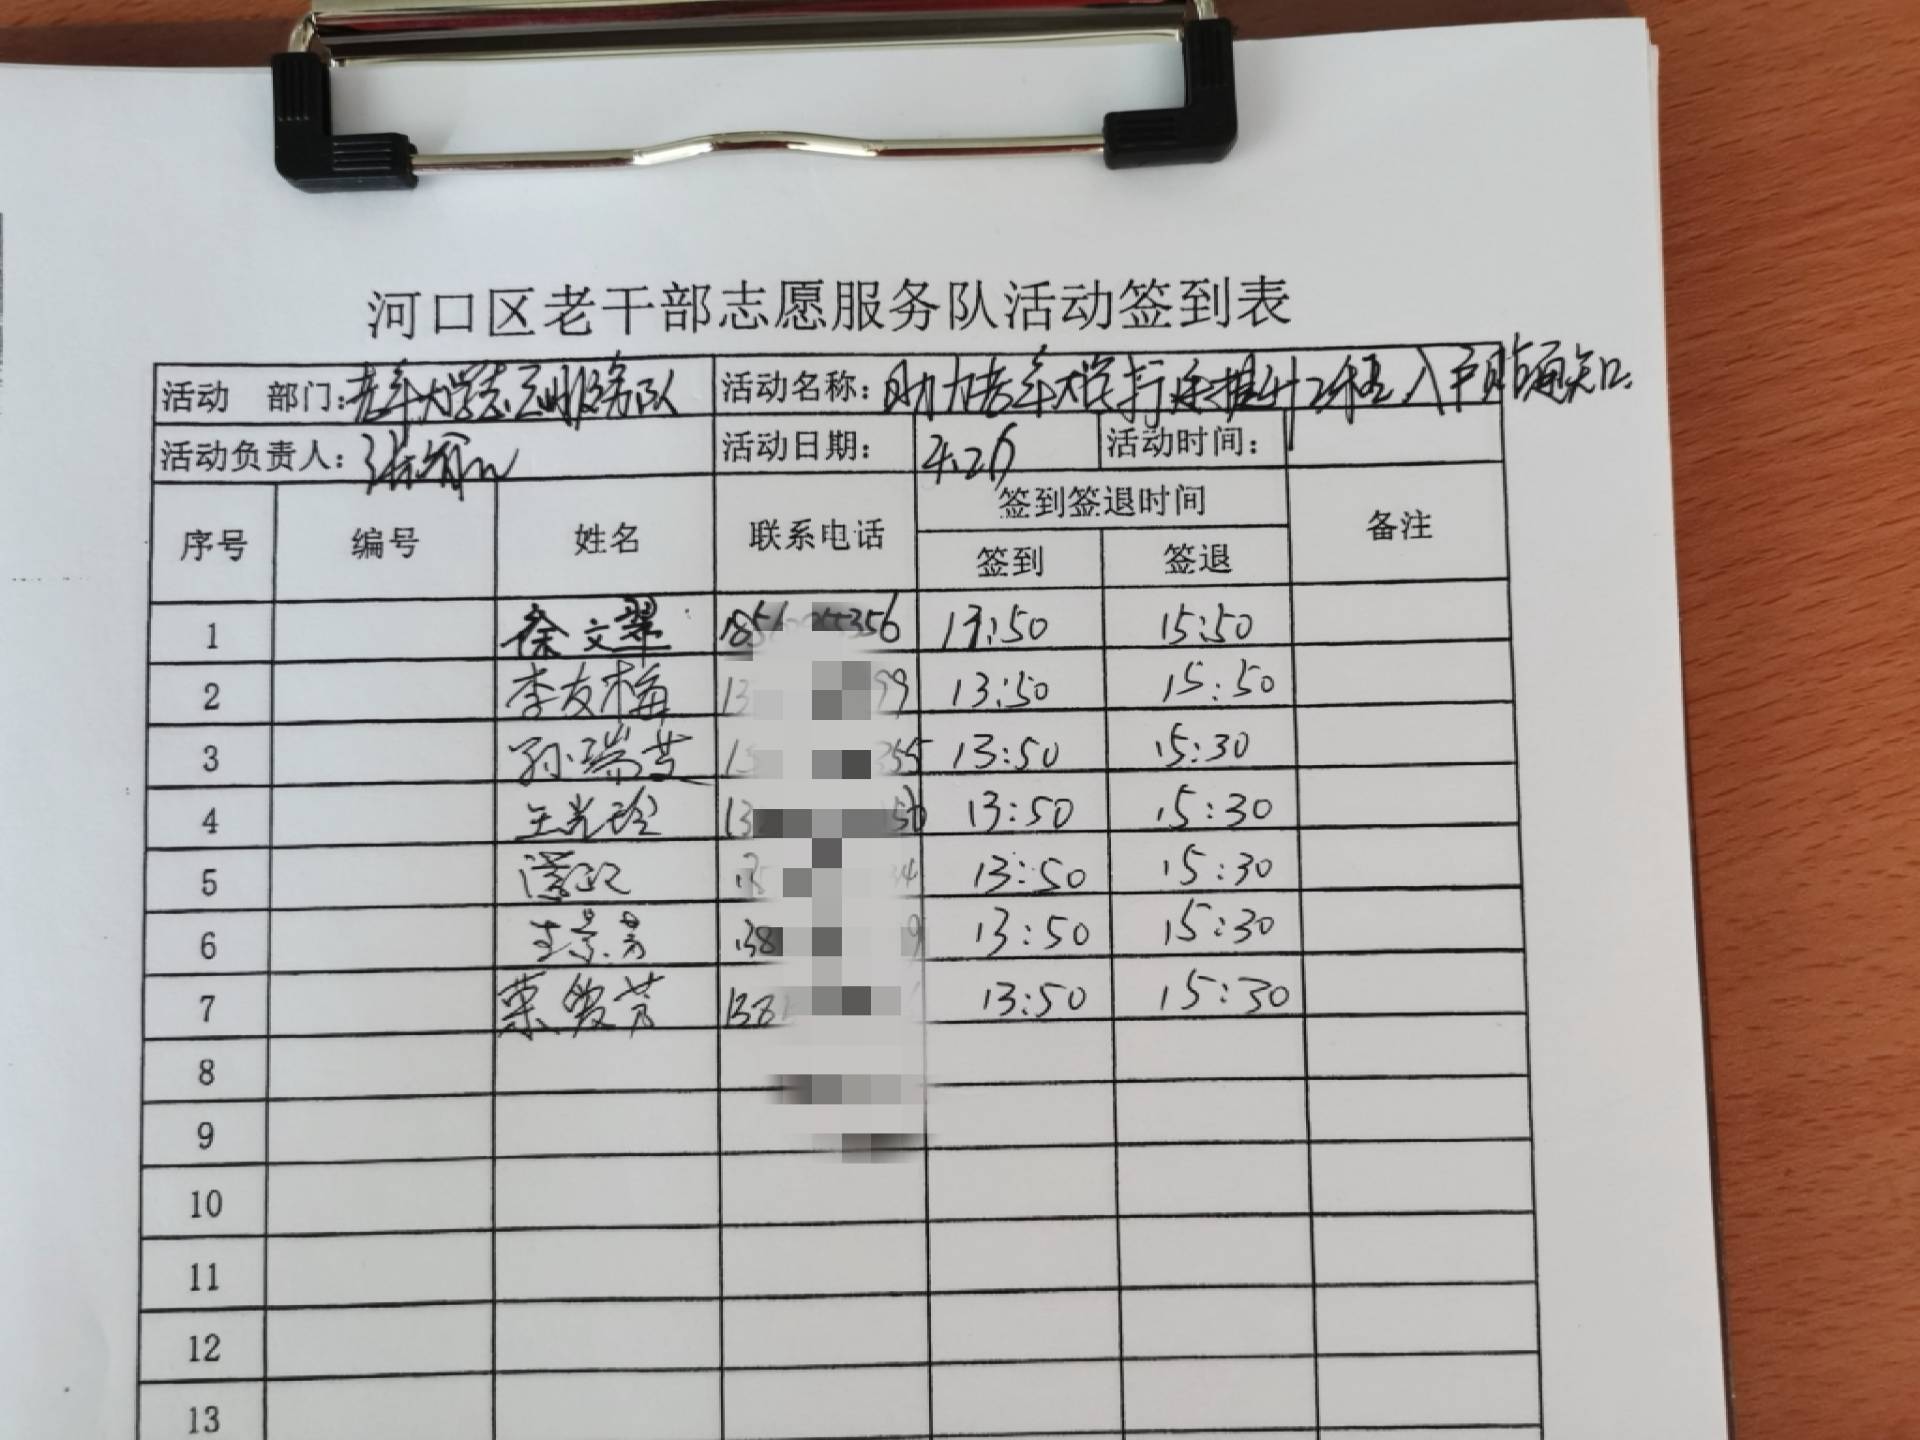 河口区老干部志愿服务队活动签到表
活动 部门：老年大学志愿服务队 活动名称：助力老年大学打造提升工程入户贴通知
活动负责人： 活动日期： 4.26 活动时间：
序号 编号 姓名 联系电话 签到签退时间 备注
签到 签退
1 徐文翠 13:50 15:50
2 李友梅 13 99 13:50 15:50
3 孙瑞芝 355 13:50 15:30
4 王光玲 13 13:50 15:30
5 13:50 15:30
6 王景芳 138 9 13:50 15:30
7 荣俊芳 138 13:50 15:30
8
9
10
11
12
13